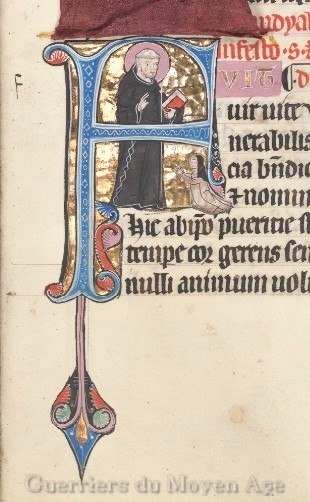 F
nfesto · s ·
VIT
uir uite
nerabilis
cia bñdic
⁊ nomin
Hic ab ipo puericie
tempe cor gerens sen
nulli animum uol
Guerriers du Moyen Age